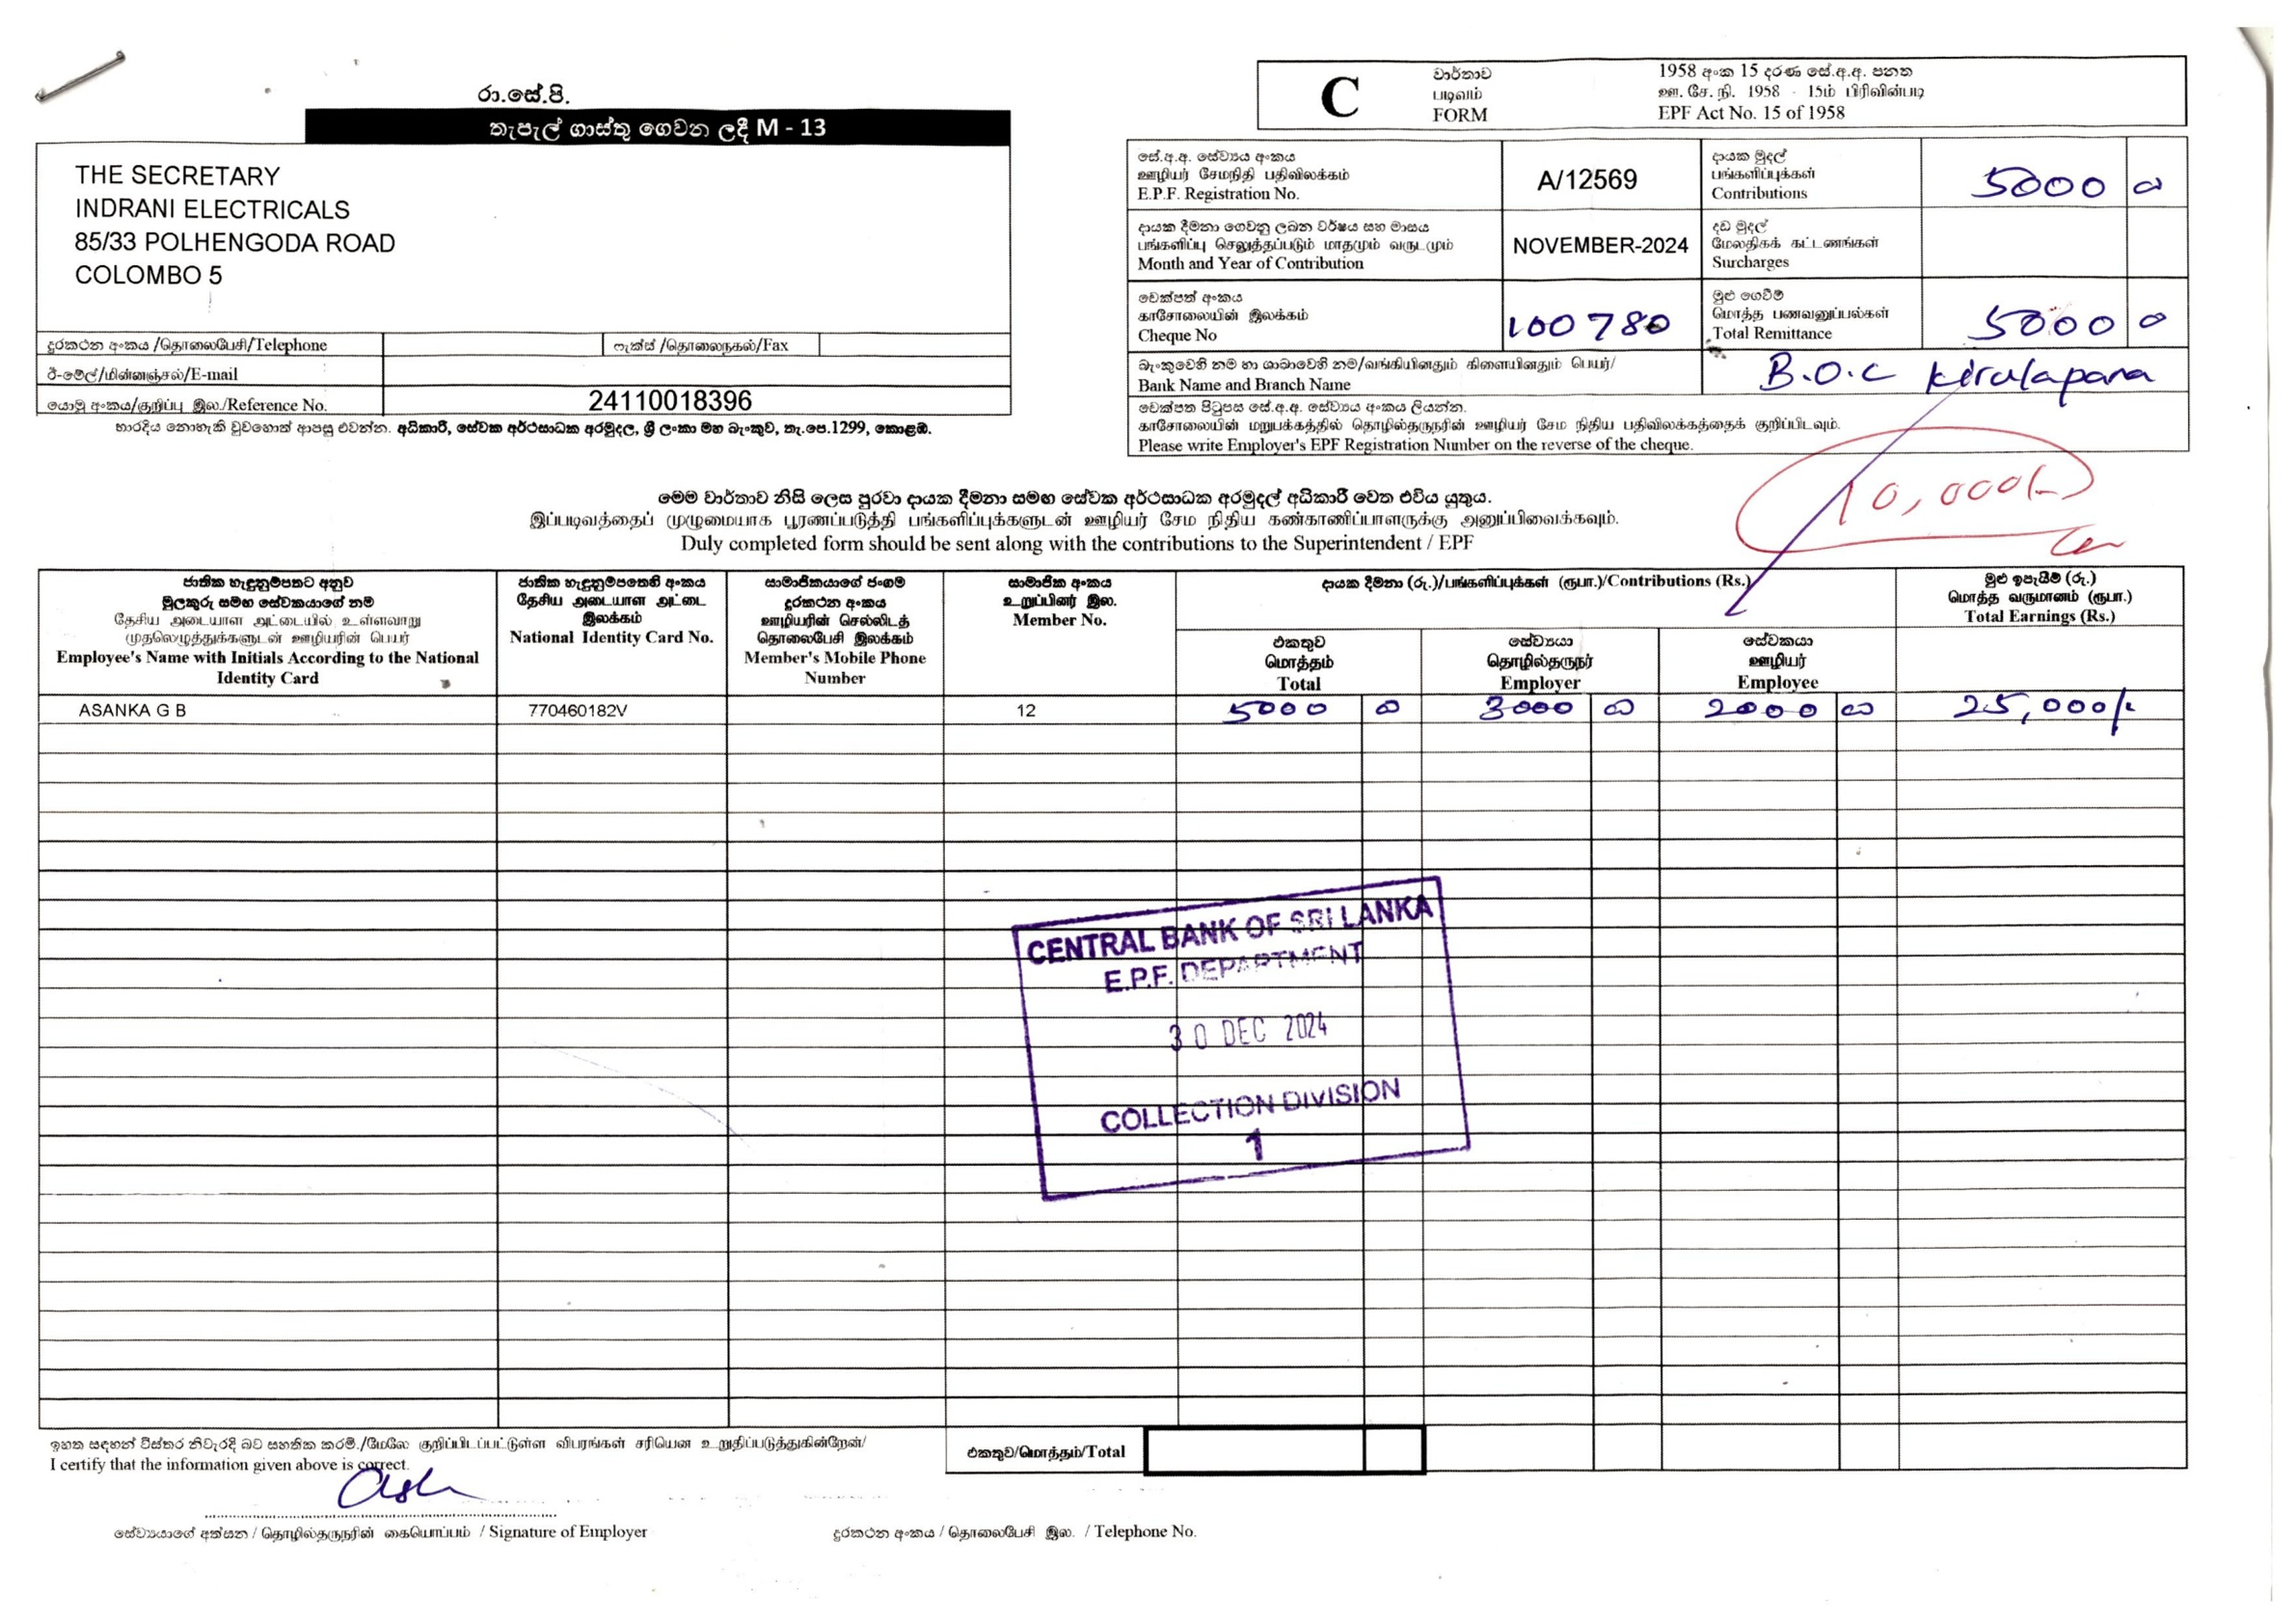 රා.සේ.පි.
තැපැල් ගාස්තු ගෙවන ලදී M - 13
THE SECRETARY
INDRANI ELECTRICALS
85/33 POLHENGODA ROAD
COLOMBO 5
දුරකථන අංකය /தொலைபேசி/Telephone
ෆැක්ස් /தொலைநகல்/Fax
ඊ-මේල්/மின்னஞ்சல்/E-mail
යොමු අංකය/குறிப்பு இல./Reference No. 24110018396
භාරදිය නොහැකි වුවහොත් ආපසු එවන්න. අධිකාරී, සේවක අර්ථසාධක අරමුදල, ශ්‍රී ලංකා මහ බැංකුව, තැ.පෙ.1299, කොළඹ.
C
වාර්තාව
படிவம்
FORM
1958 අංක 15 දරණ සේ.අ.අ. පනත
ஊ. சே. நி. 1958 - 15ம் பிரிவின்படி
EPF Act No. 15 of 1958
සේ.අ.අ. සේව්‍යය අංකය
ஊழியர் சேமநிதி பதிவிலக்கம்
E.P.F. Registration No.
A/12569
දායක මුදල්
பங்களிப்புக்கள்
Contributions
5000 00
දායක දීමනා ගෙවනු ලබන වර්ෂය සහ මාසය
பங்களிப்பு செலுத்தப்படும் மாதமும் வருடமும்
Month and Year of Contribution
NOVEMBER-2024
දඩ මුදල්
மேலதிகக் கட்டணங்கள்
Surcharges
චෙක්පත් අංකය
காசோலையின் இலக்கம்
Cheque No
100780
මුළු ගෙවීම්
மொத்த பணவனுப்பல்கள்
Total Remittance
5000 0
බැංකුවෙහි නම හා ශාඛාවෙහි නම/வங்கியினதும் கிளையினதும் பெயர்/
Bank Name and Branch Name
B.O.C Kirulapana
චෙක්පත පිටුපස සේ.අ.අ. සේව්‍යය අංකය ලියන්න.
காசோலையின் மறுபக்கத்தில் தொழில்தருநரின் ஊழியர் சேம நிதிய பதிவிலக்கத்தைக் குறிப்பிடவும்.
Please write Employer's EPF Registration Number on the reverse of the cheque.
10,000/-
මෙම වාර්තාව නිසි ලෙස පුරවා දායක දීමනා සමඟ සේවක අර්ථසාධක අරමුදල් අධිකාරී වෙත එවිය යුතුය.
இப்படிவத்தைப் முழுமையாக பூரணப்படுத்தி பங்களிப்புக்களுடன் ஊழியர் சேம நிதிய கண்காணிப்பாளருக்கு அனுப்பிவைக்கவும்.
Duly completed form should be sent along with the contributions to the Superintendent / EPF
ජාතික හැඳුනුම්පතට අනුව
මුලකුරු සමඟ සේවකයාගේ නම
தேசிய அடையாள அட்டையில் உள்ளவாறு
முதலெழுத்துக்களுடன் ஊழியரின் பெயர்
Employee's Name with Initials According to the National
Identity Card
ජාතික හැඳුනුම්පතෙහි අංකය
தேசிய அடையாள அட்டை
இலக்கம்
National Identity Card No.
සාමාජිකයාගේ ජංගම
දුරකථන අංකය
ஊழியரின் செல்லிடத்
தொலைபேசி இலக்கம்
Member's Mobile Phone
Number
සාමාජික අංකය
உறுப்பினர் இல.
Member No.
දායක දීමනා (රු.)/பங்களிப்புக்கள் (ரூபா.)/Contributions (Rs.)
එකතුව
மொத்தம்
Total
සේව්‍යයා
தொழில்தருநர்
Employer
සේවකයා
ஊழியர்
Employee
මුළු ඉපැයීම් (රු.)
மொத்த வருமானம் (ரூபா.)
Total Earnings (Rs.)
ASANKA G B 770460182V 12 5000 00 3000 00 2000 00 25,000/-
CENTRAL BANK OF SRI LANKA
E.P.F. DEPARTMENT
30 DEC 2024
COLLECTION DIVISION
1
එකතුව/மொத்தம்/Total
ඉහත සඳහන් විස්තර නිවැරදි බව සහතික කරමි./மேலே குறிப்பிடப்பட்டுள்ள விபரங்கள் சரியென உறுதிப்படுத்துகின்றேன்/
I certify that the information given above is correct.
සේව්‍යයාගේ අත්සන / தொழில்தருநரின் கையொப்பம் / Signature of Employer
දුරකථන අංකය / தொலைபேசி இல. / Telephone No.